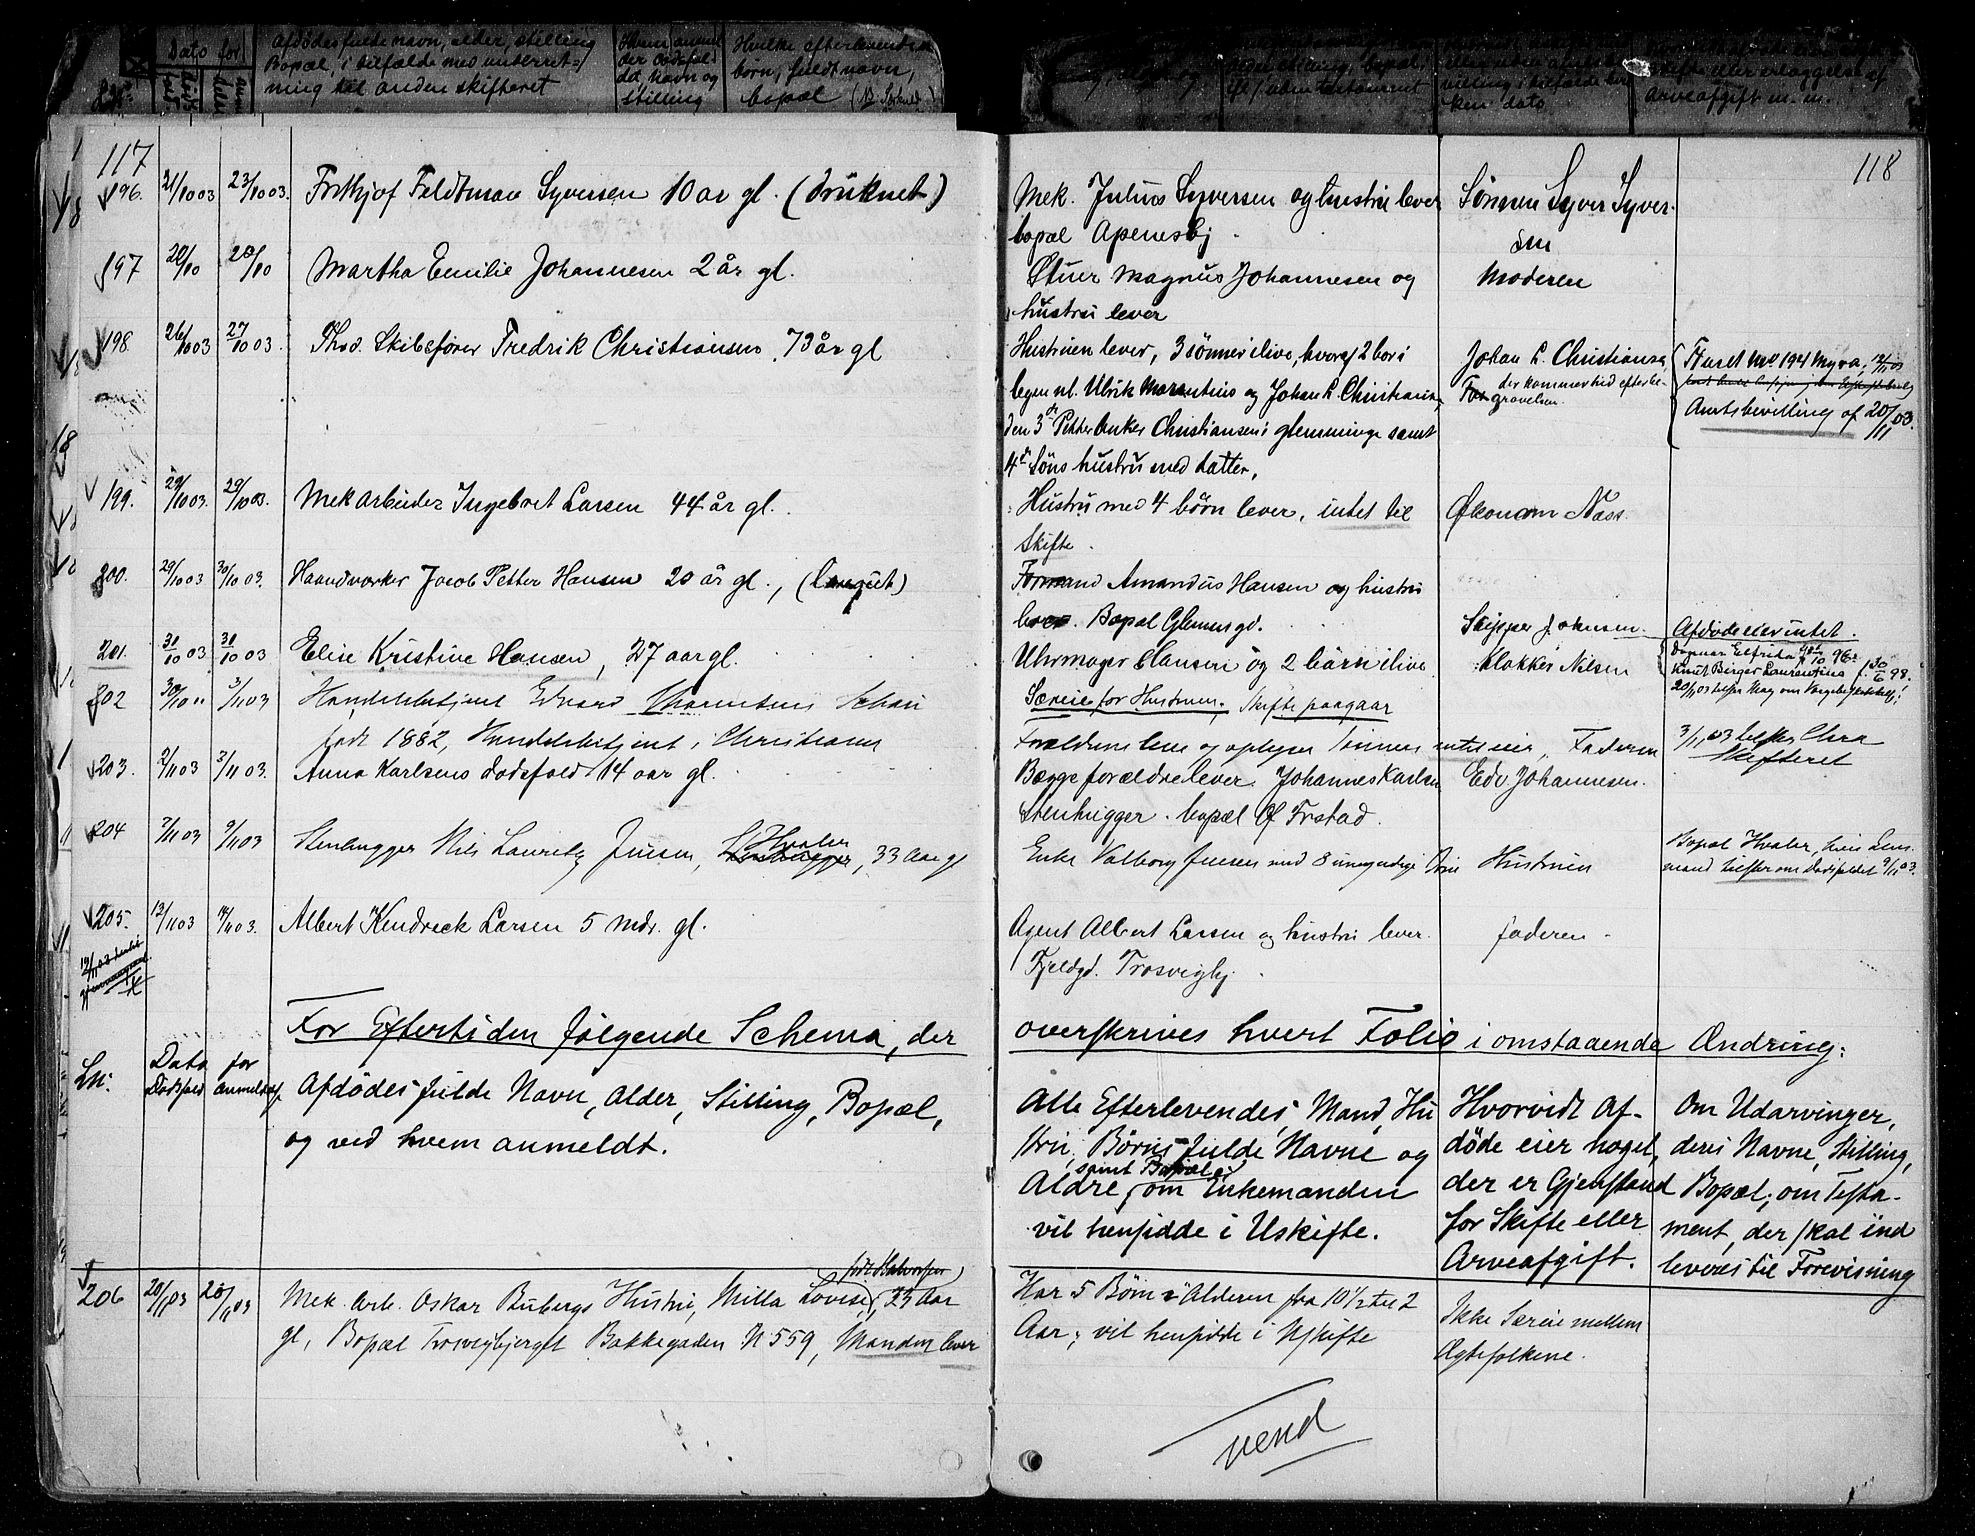 Dato for
Afdødes fulde navn, alder, stilling
Bopæl, i tilfælde med underret-
ning til anden skifteret
Hvem anmel
der dødsfal-
det, navn og
stilling
Hvilke efterlevende
børn, fuldt navn,
bopæl
117
118
196. 21/10 03 23/10 03. Frithjof Feldtman Syversen 10 aar gl. (druknet)
Mek. Julius Syversen og hustru lever
bopæl Apenesbj.
Sønnen Syver Syver-
sen
197 20/10 20/10 Martha Emilie Johannesen 2 år gl.
Stuer Magnus Johannesen og
hustru lever
Moderen
198. 26/10 03 27/10 03. Fhvd. Skibsfører Fredrik Christiansen, 73 år gl
Hustruen lever, 3 sönner ilive, hvoraf 2 bor i
byen nl. Ulrik Marentius og Johan L. Christiansen,
den 3die Petter Anker Christiansen i glemminge samt
4de Söns hustru med datter.
Johan L. Christiansen
der kommer hid efter be-
gravelsen.
Huset No 194 Myra,
Amtsbevilling af 20/11 03.
199. 29/10 03. 29/10 03. Mek Arbeider Ingebret Larsen 44 år gl.
Hustru med 4 börn lever, intet til
Skifte.
Økonom Næss.
200. 29/10 03 30/10 03. Haandværker Jacob Petter Hansen 20 år gl.,
Formand Amandus Hansen og hustru
lever. Bopæl Glemmengd.
Skipper Johnsen.
201. 31/10 03 31/10 03 Elise Kristine Hansen, 27 aar gl.
Uhrmager Hansen og 2 børn ilive
Særeie for Hustruen. Skifte paagaar
Klokker Nilsen
Afdøde eier intet.
Dagmar Elfrida
Knut Birger Laurentius f. 30/6 98.
202 30/10 " 3/11 03 Handelsbetjent Edvard Thorentius Schau
født 1882, Handelsbetjent i Christiania
Forældrene lever og oplyser Sønnen intet eier, Faderen
3/11 03 besk. Chra
Skifteret
203. 2/11 03 3/11 03. Anna Karlsens dødsfald 14 aar gl.
Begge forældre lever. Johannes Karlsen
Stenhugger. bopæl Gl Frstad.
Edv Johannesen.
204 7/11 03 9/11 03 Stenhugger Nils Lauritz Jensen, Hvaler, 33 Aar gl
Enke Valborg Jensen med 8 umyndige Børn
Hustruen
Bopæl Hvaler, hvis Lens-
mand tilskr om Dødsfaldet 9/11 03.
205. 13/11 03 14/11 03. Albert Kendreck Larsen 5 mdr. gl.
Agent Albert Larsen og hustru lever.
Fjeldgd. Trosvigbj.
faderen.
For Eftertiden følgende Schema, der
overskrives hvert Folio i omstaaende Ændring:
Ln:
Dato for
Dødsfald anmeldelse
Afdødes fulde Navn, Alder, Stilling, Bopæl,
og ved hvem anmeldt.
Alle Efterlevendes, Mand, Hu
stru, Børns fulde Navne og
samt Bopæl
Aldre, om Enkemanden
vil hensidde i Uskifte.
Hvorvidt Af-
døde eier noget,
der er Gjenstand
for Skifte eller
Arveafgift.
Om Udarvinger,
deres Navne, Stilling,
Bopæl; om Testa-
ment, der skal ind
leveres til Forevisning
206 20/11 03 20/11 03 Mek. Arb. Oskar Bubergs Hustru, Milla Lovise, født Halvorsen,
gl, Bopæl Trosvigbjerget Bakkegaden N 559, Manden lever
Har 5 Børn i Alderen fra 10 1/2 til 2
Aar; vil hensidde i Uskifte
Ikke Særeie mellem
Ægtefolkene.
vend